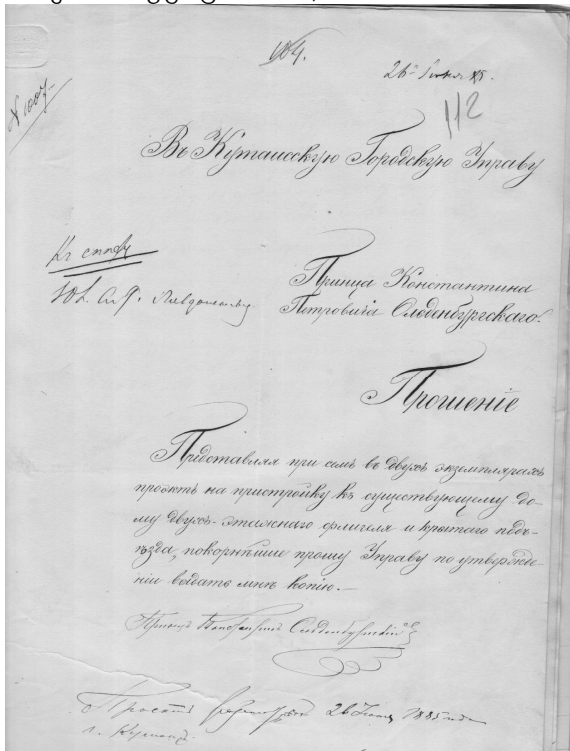 104.
26го Iюня 85.
112
№ 1007
Въ Кутаисскую Городскую Управу
Принца Константина
Петровича Ольденбургскаго.
Прошенiе
Представляя при семъ въ двухъ экземплярахъ
проэктъ на пристройку къ существующему до-
му двухъ-этажнаго флигеля и крытаго подъ-
ѣзда, покорнѣйше прошу Управу по утвержде-
нiи выдать мнѣ копiю.—
Принцъ Константинъ Ольденбургскiй
26 Iюня 1885 года
г. Кутаисъ.